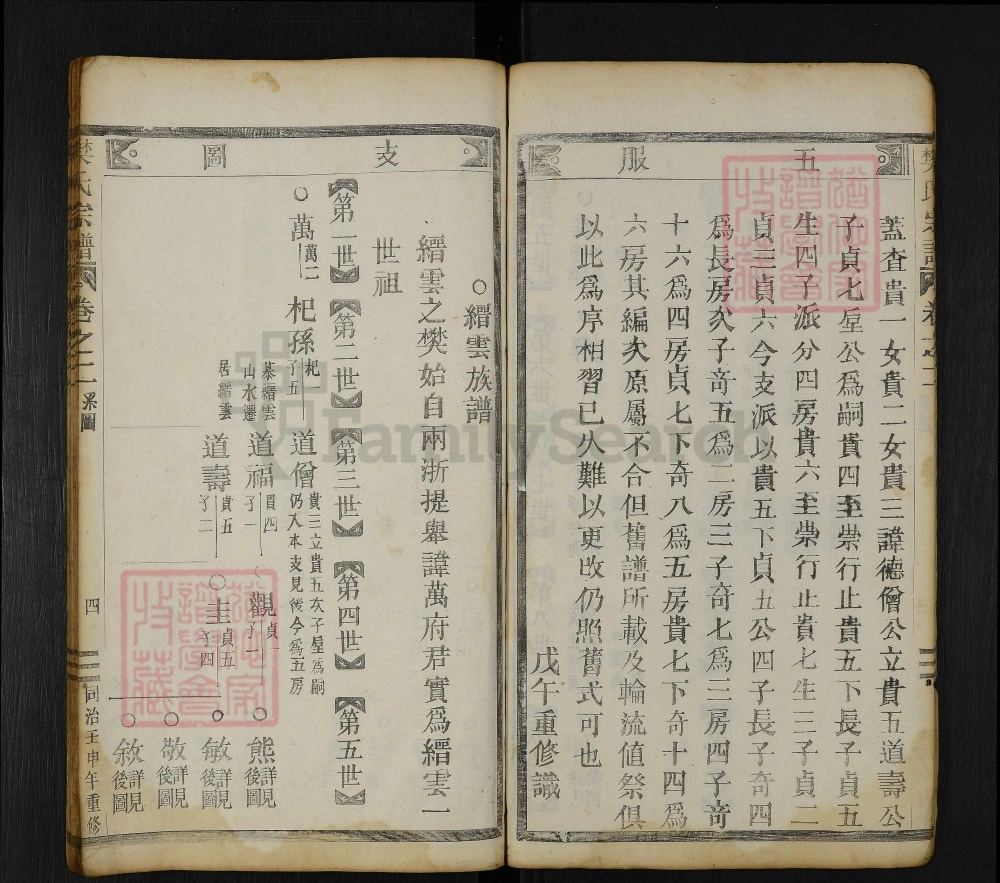 五服
蓋查貴一女貴二女貴三諱德僧公立貴五道壽公
子貞七垕公爲嗣貴四至崇行止貴五下長子貞五
生四子派分四房貴六至崇行止貴七生三子貞二
貞三貞六今支派以貴五下貞五公四子長子奇四
爲長房次子奇五爲二房三子奇七爲三房四子奇
十六爲四房貞七下奇八爲五房貴七下奇十四爲
六房其編次原屬不合但舊譜所載及輪流值祭俱
以此爲序相習已久難以更改仍照舊式可也
戊午重修識
支圖
○縉雲族譜
縉雲之樊始自兩浙提舉諱萬府君實爲縉雲一
世祖
【第一世】【第二世】【第三世】【第四世】【第五世】
○萬 萬二
杞孫 杞 子五
慕縉雲
山水遷
居縉雲
道僧 貴三立貴五次子垕爲嗣
仍入本支見後今爲五房
道福 貴四 子一
○觀 貞一 子一
○熊 詳見後圖
道壽 貴五 子二
○圭 貞五 子四
○敏 詳見後圖
○敬 詳見後圖
○敘 詳見後圖
樊氏宗譜
卷之二 系圖
四
同治壬申年重修
FamilySearch